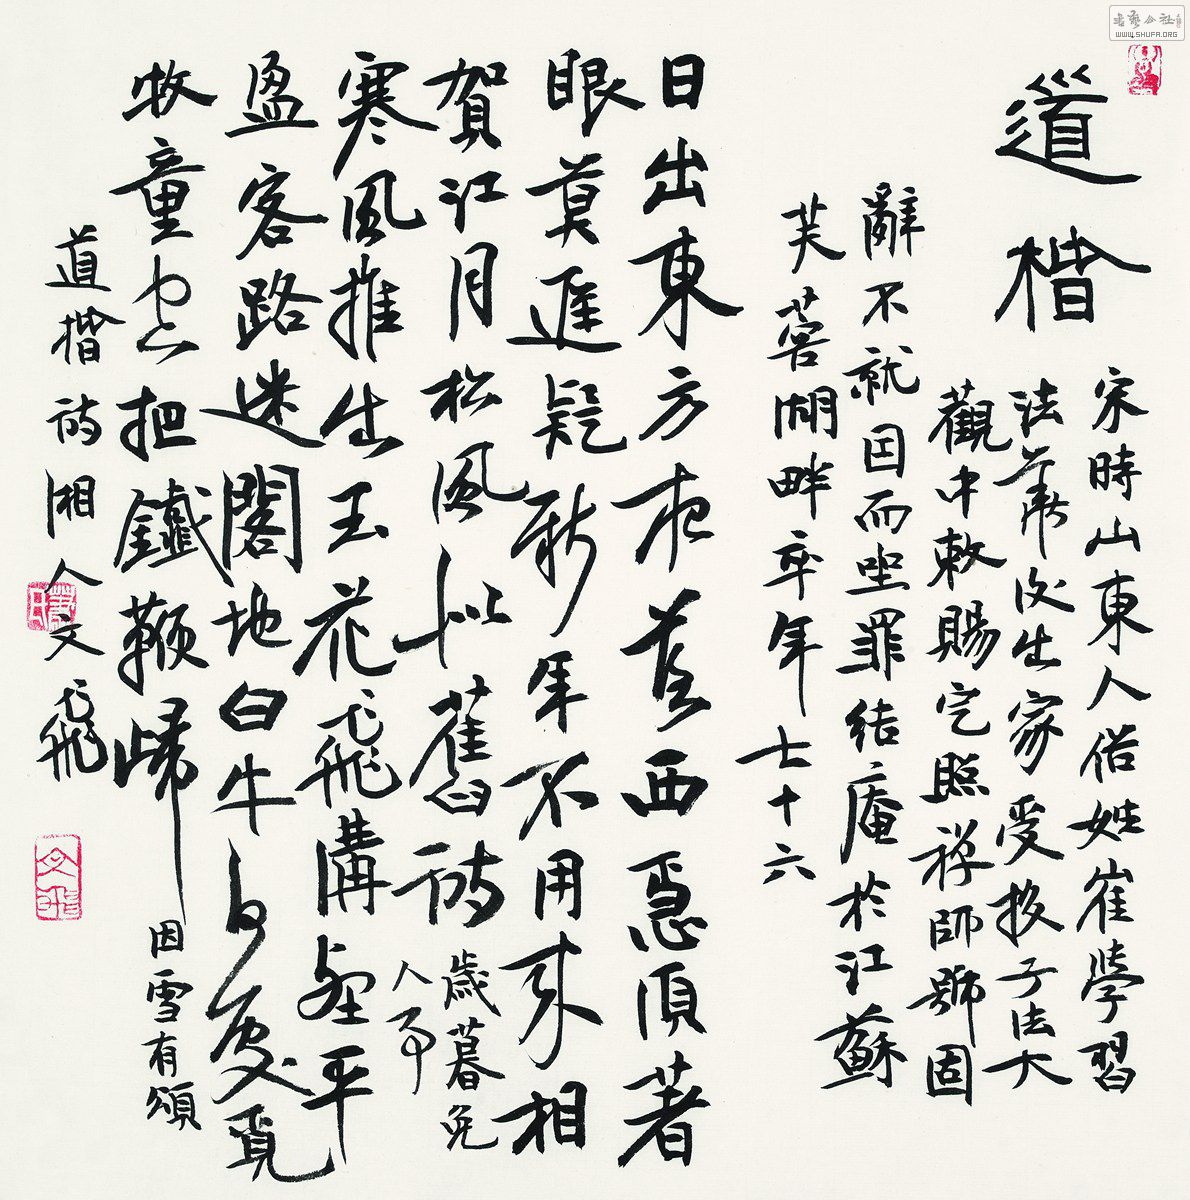 書藝公社
WWW.SHUFA.ORG
道楷
宋時山東人俗姓崔學習
法華後出家受投子法大
觀中敕賜定照禪師號固
辭不就因而坐罪結庵於江蘇
芙蓉湖畔卒年七十六
日出東方夜落西急須著
眼莫遲疑新年不用來相
賀江月松風似舊詩 歲暮免
人事
寒風推出玉花飛溝壑平
盈客路迷閣地白牛何處覓
牧童空把鐵鞭歸 因雪有頌
道楷詩湘人文飛
文飛